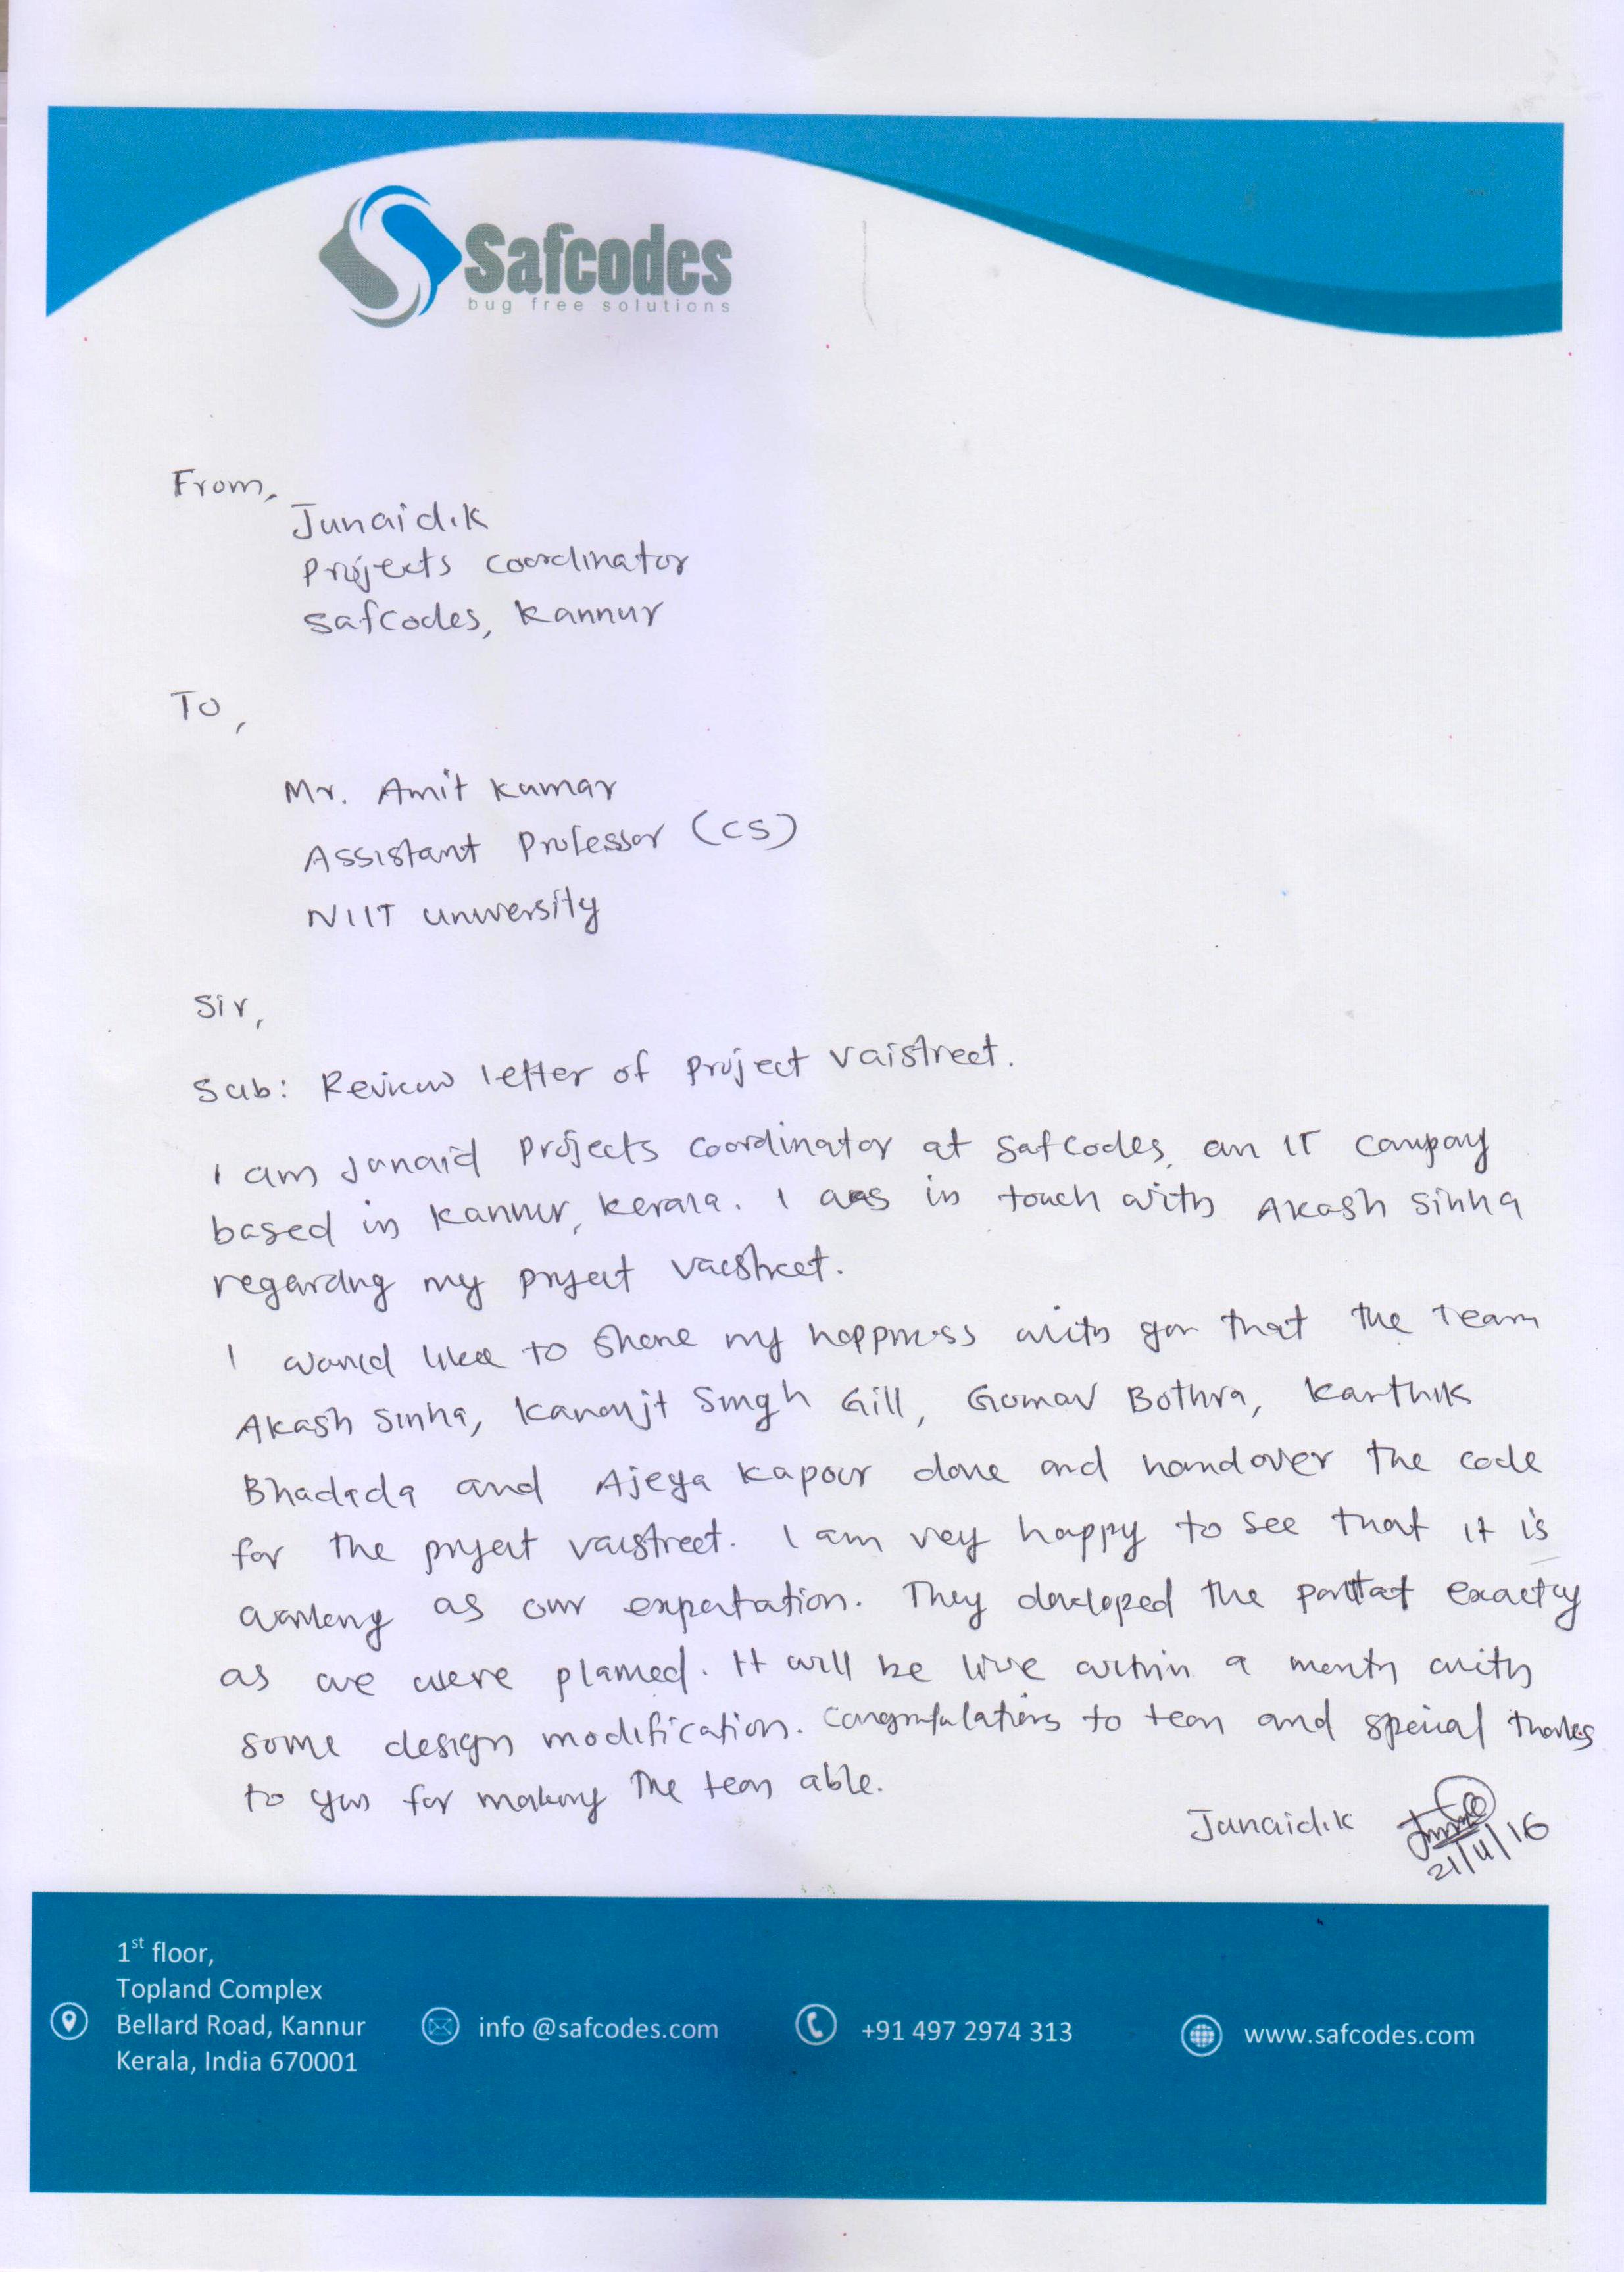 Safcodes
bug free solutions
From,
Junaid.K
Projects Coordinator
Safcodes, Kannur
To,
Mr. Amit Kumar
Assistant Professor (CS)
NIIT University
Sir,
Sub: Review letter of Project Vaistreet.
I am Junaid Projects Coordinator at Safcodes, an IT company
based in Kannur, Kerala. I was in touch with Akash Sinha
regarding my project Vaistreet.
I would like to share my happiness with you that the team
Akash Sinha, Karanjit Singh Gill, Gomav Bothra, Karthik
Bhadada and Ajeya Kapoor done and handover the code
for the project Vaistreet. I am very happy to see that it is
working as our expectation. They developed the exactly
as we were planned. It will be live within a month with
some design modification. Congratulations to team and special thanks
to you for making the team able.
Junaid.K
21/11/16
1st floor,
Topland Complex
Bellard Road, Kannur
Kerala, India 670001
info @safcodes.com
+91 497 2974 313
www.safcodes.com